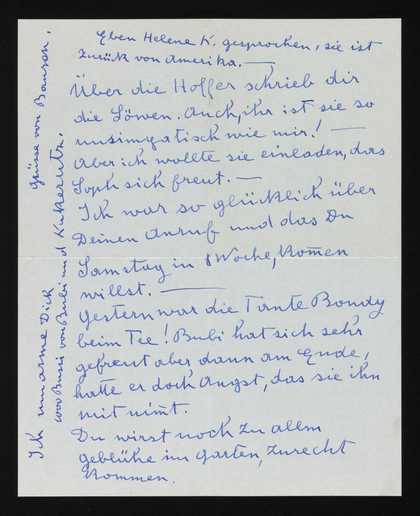 Eben Helene K. gesprochen, sie ist
zurück von Amerika. —
Über die Hoffer schrieb dir
die Löwen. Auch, ihr ist sie so
unsimpatisch wie mir! —
Aber ich wollte sie einladen, das
Soph sich freut. —
Ich war so glücklich über
Deinen Anruf und das Du
Samstag in 8 Woche, kom̄en
willst. —
Gestern war die Tante Bondy
beim Tee! Bubi hat sich sehr
gefreut aber dann am Ende,
hatte er doch Angst, das sie ihn
mit nim̄t.
Du wirst noch zu allem
geblühe im Garten, zurecht
kommen.
Ich umarme Dich
von Bubi und
Grüsse von